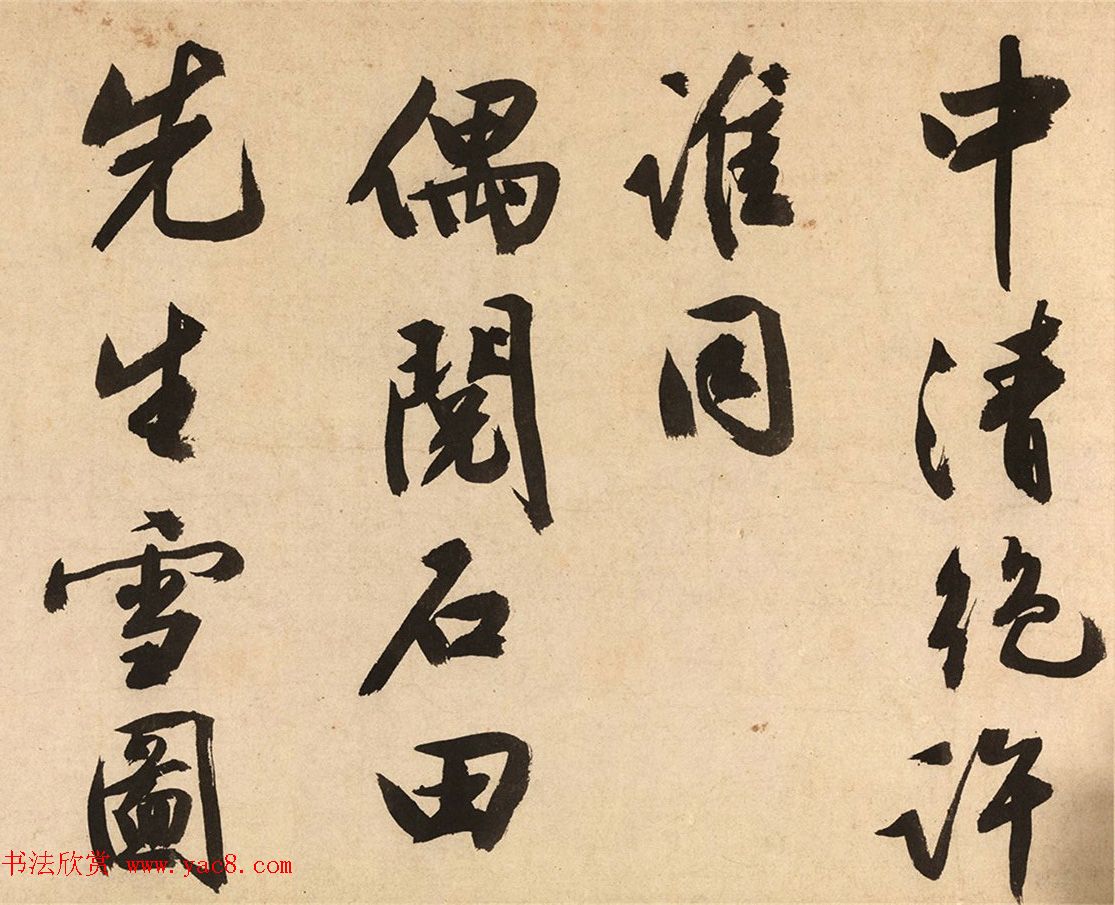 中清絶許
誰同
偶閱石田
先生雪圖
书法欣赏 www.yac8.com